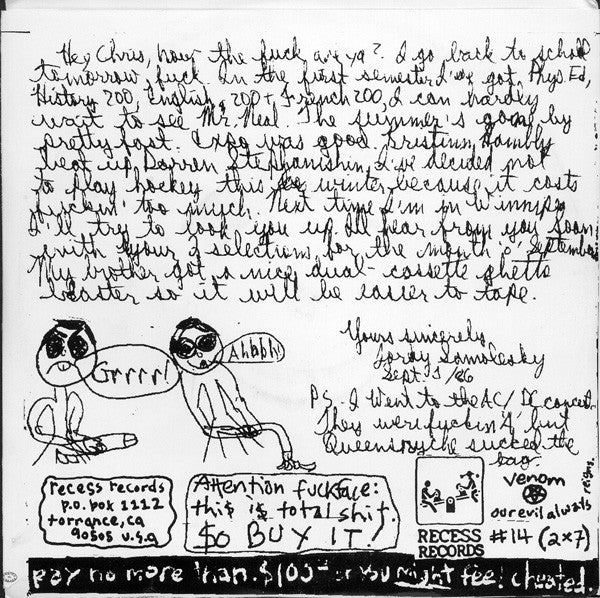 Hey Chris, how the fuck are ya? I go back to school
tomorrow, fuck. In the first semester I've got Phys. Ed,
History 200, English 200 + French 200, I can hardly
wait to see Mr. Neal. The summer's gone by
pretty fast. Expo was good. Hambly
beat up Darren Stephanishin, I've decided not
to play hockey this winter because it costs
fuckin' too much. Next time I'm in Winnipeg
I'll try to look you up. I'll hear from you soon
with your selections for the month of September
My brother got a nice dual-cassette ghetto
blaster so it will be easier to tape.
Yours sincerely,
Jordy
Sept. 1/86
PS. I went to the AC/DC concert.
They were fuckin' A, but
Queensryche succed the
bag.
Grrrr!
Ahhhh!
recess records
p.o. box 1112
torrance, ca
90505 u.s.a
Attention fuckface:
this is total shit.
$o BUY IT!
RECESS
RECORDS
venom
our evil always
#14 (2x7)
pay no more than $100 or you might feel cheated.